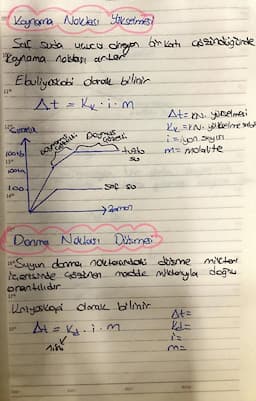 Kaynama Noktası Yükselmesi
Saf suda uçucu olmayan bir katı çözündüğünde
kaynama noktası artar.
Ebuliyoskobi olarak bilinir
Δt = Kk · i · m
Δt = KN. yükselmesi
Kk = KN. yükselme sabiti
i = iyon sayısı
m = molalite
Sıcaklık
doymamış çözelti
doymuş çözelti
tuzlu su
100
saf su
Zaman
Donma Noktası Düşmesi
Suyun donma noktasındaki düşme miktarı
içerisinde çözünen madde miktarıyla doğru
orantılıdır.
Kriyoskopi olarak bilinir
Δt = Kd · i · m
Δt =
Kd =
i =
m =